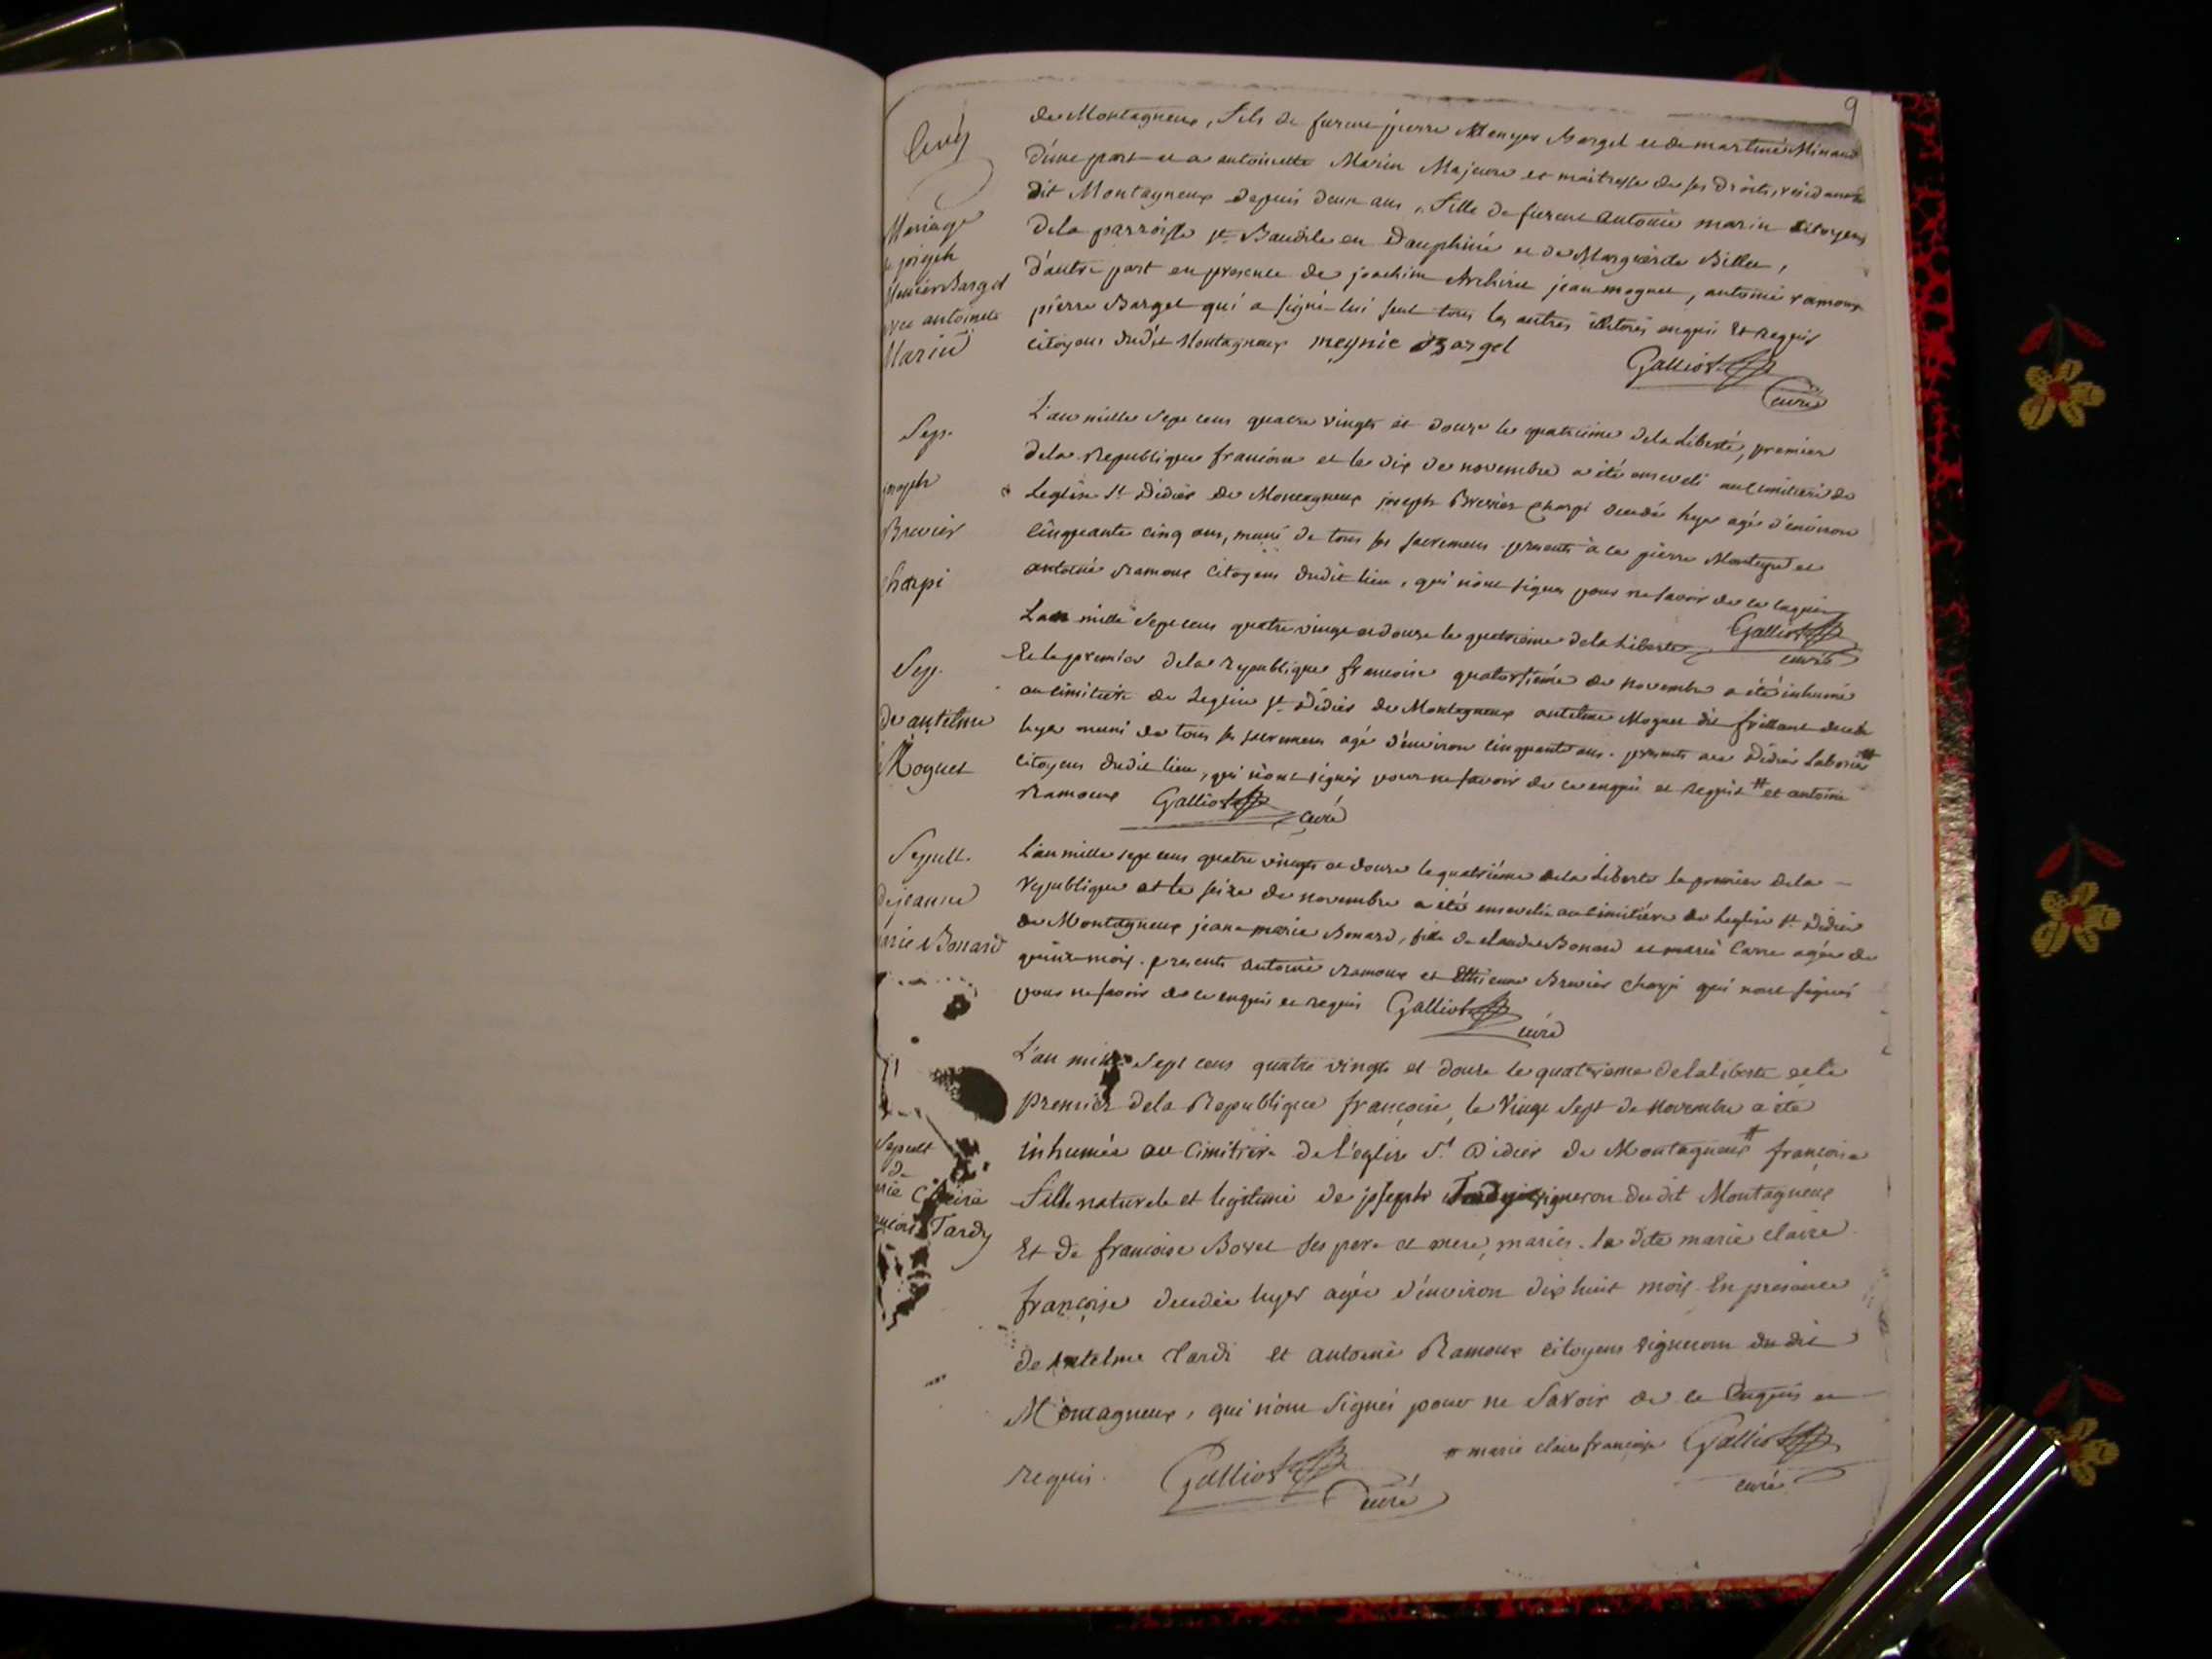 9
de Montagneux, fils de furent pierre Menyer Bargel et de martine Minaud
d'une part et a antoinette Marin Majeure et maitresse de ses droits, residante
dit Montagneux depuis deux ans, fille de furent antoine marin citoyens
dela parroisse st. Baudile en Dauphiné et de Marguerite Billet,
d'autre part en presence de joachim jean moguet, antoine ramoux
pierre Bargel qui a signé lui seul tous les autres illiterés enquis Et requis
citoyens dudit Montagneux meynie Bargel
Galliot
curé
Mariage
joseph
Menier Bargel
avec antoinette
Marin
L'an mille Sept cens quatre vingts et douze le quatrieme dela Liberté, premier
dela Republique francoise et le dix de novembre a été enseveli au cimitiere de
Leglise St Didier de Montagneux joseph Brevier charpi decedé hyer agé d'environ
Cinquante cinq ans, muni de tous ses sacremens. presents à ce pierre Monteyre et
antoine Ramoux Citoyens dudit lieu, qui n'ont signé pour ne savoir de ce enquis
Galliot
curé
Sep.
joseph
Brevier
Charpi
Lan mille Sept cens quatre vingt et douze le quatrieme dela Liberté
Et le premier dela Republique francoise quatorzieme de novembre a été inhumé
au cimitiere de Leglise st. Didier de Montagneux antelme Moguet dit frillant decedé
hyer muni de tous ses sacremens agé d'environ cinquante ans. presents a ce Didier Laborier #
citoyens dudit lieu, qui n'ont signés pour ne savoir de ce enquis et requis # et antoine
Ramoux Galliot curé
Sep.
de antelme
Moguet
L'an mille sept cens quatre vingts et douze le quatrieme dela Liberté le premier dela
republique et le seize de novembre a été ensevelie au cimitiere de Leglise st. Didier
de Montagneux jeane marie Bonard, fille de claude Bonard et marie Carre agée de
quinze mois. presents antoine Ramoux et Ethienne Brevier charpi qui n'ont signés
pour ne savoir de ce enquis et requis Galliot
curé
Sepult.
de jeanne
marie Bonard
L'an mille Sept cens quatre vingts et douze le quatrieme dela liberté et le
premier dela Republique francoise, le vingt Sept de Novembre a été
inhumée au Cimitiere de l'eglise St. Didier de Montagneux # francoise
fille naturele et legitime de joseph Tardy vigneron du dit Montagneux
Et de francoise Bovet ses pere et mere, mariés. la dite marie claire
françoise decedée hyer agée d'environ dix huit mois. En presence
de Antelme Tardi Et antoine Ramoux citoyens vignerons du dit
Montagneux, qui n'ont signés pour ne Savoir de ce Enquis et
requis. Galliot curé
# marie claire françoise Galliot
curé
Sepult
de
marie Claire
françoise Tardy